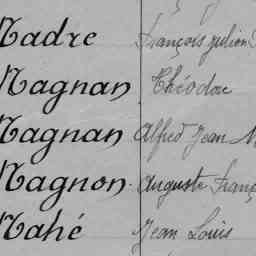 Madre François Julien
Magnan Théodore
Magnan Alfred Jean M
Magnon Auguste Franç
Mahé Jean Louis